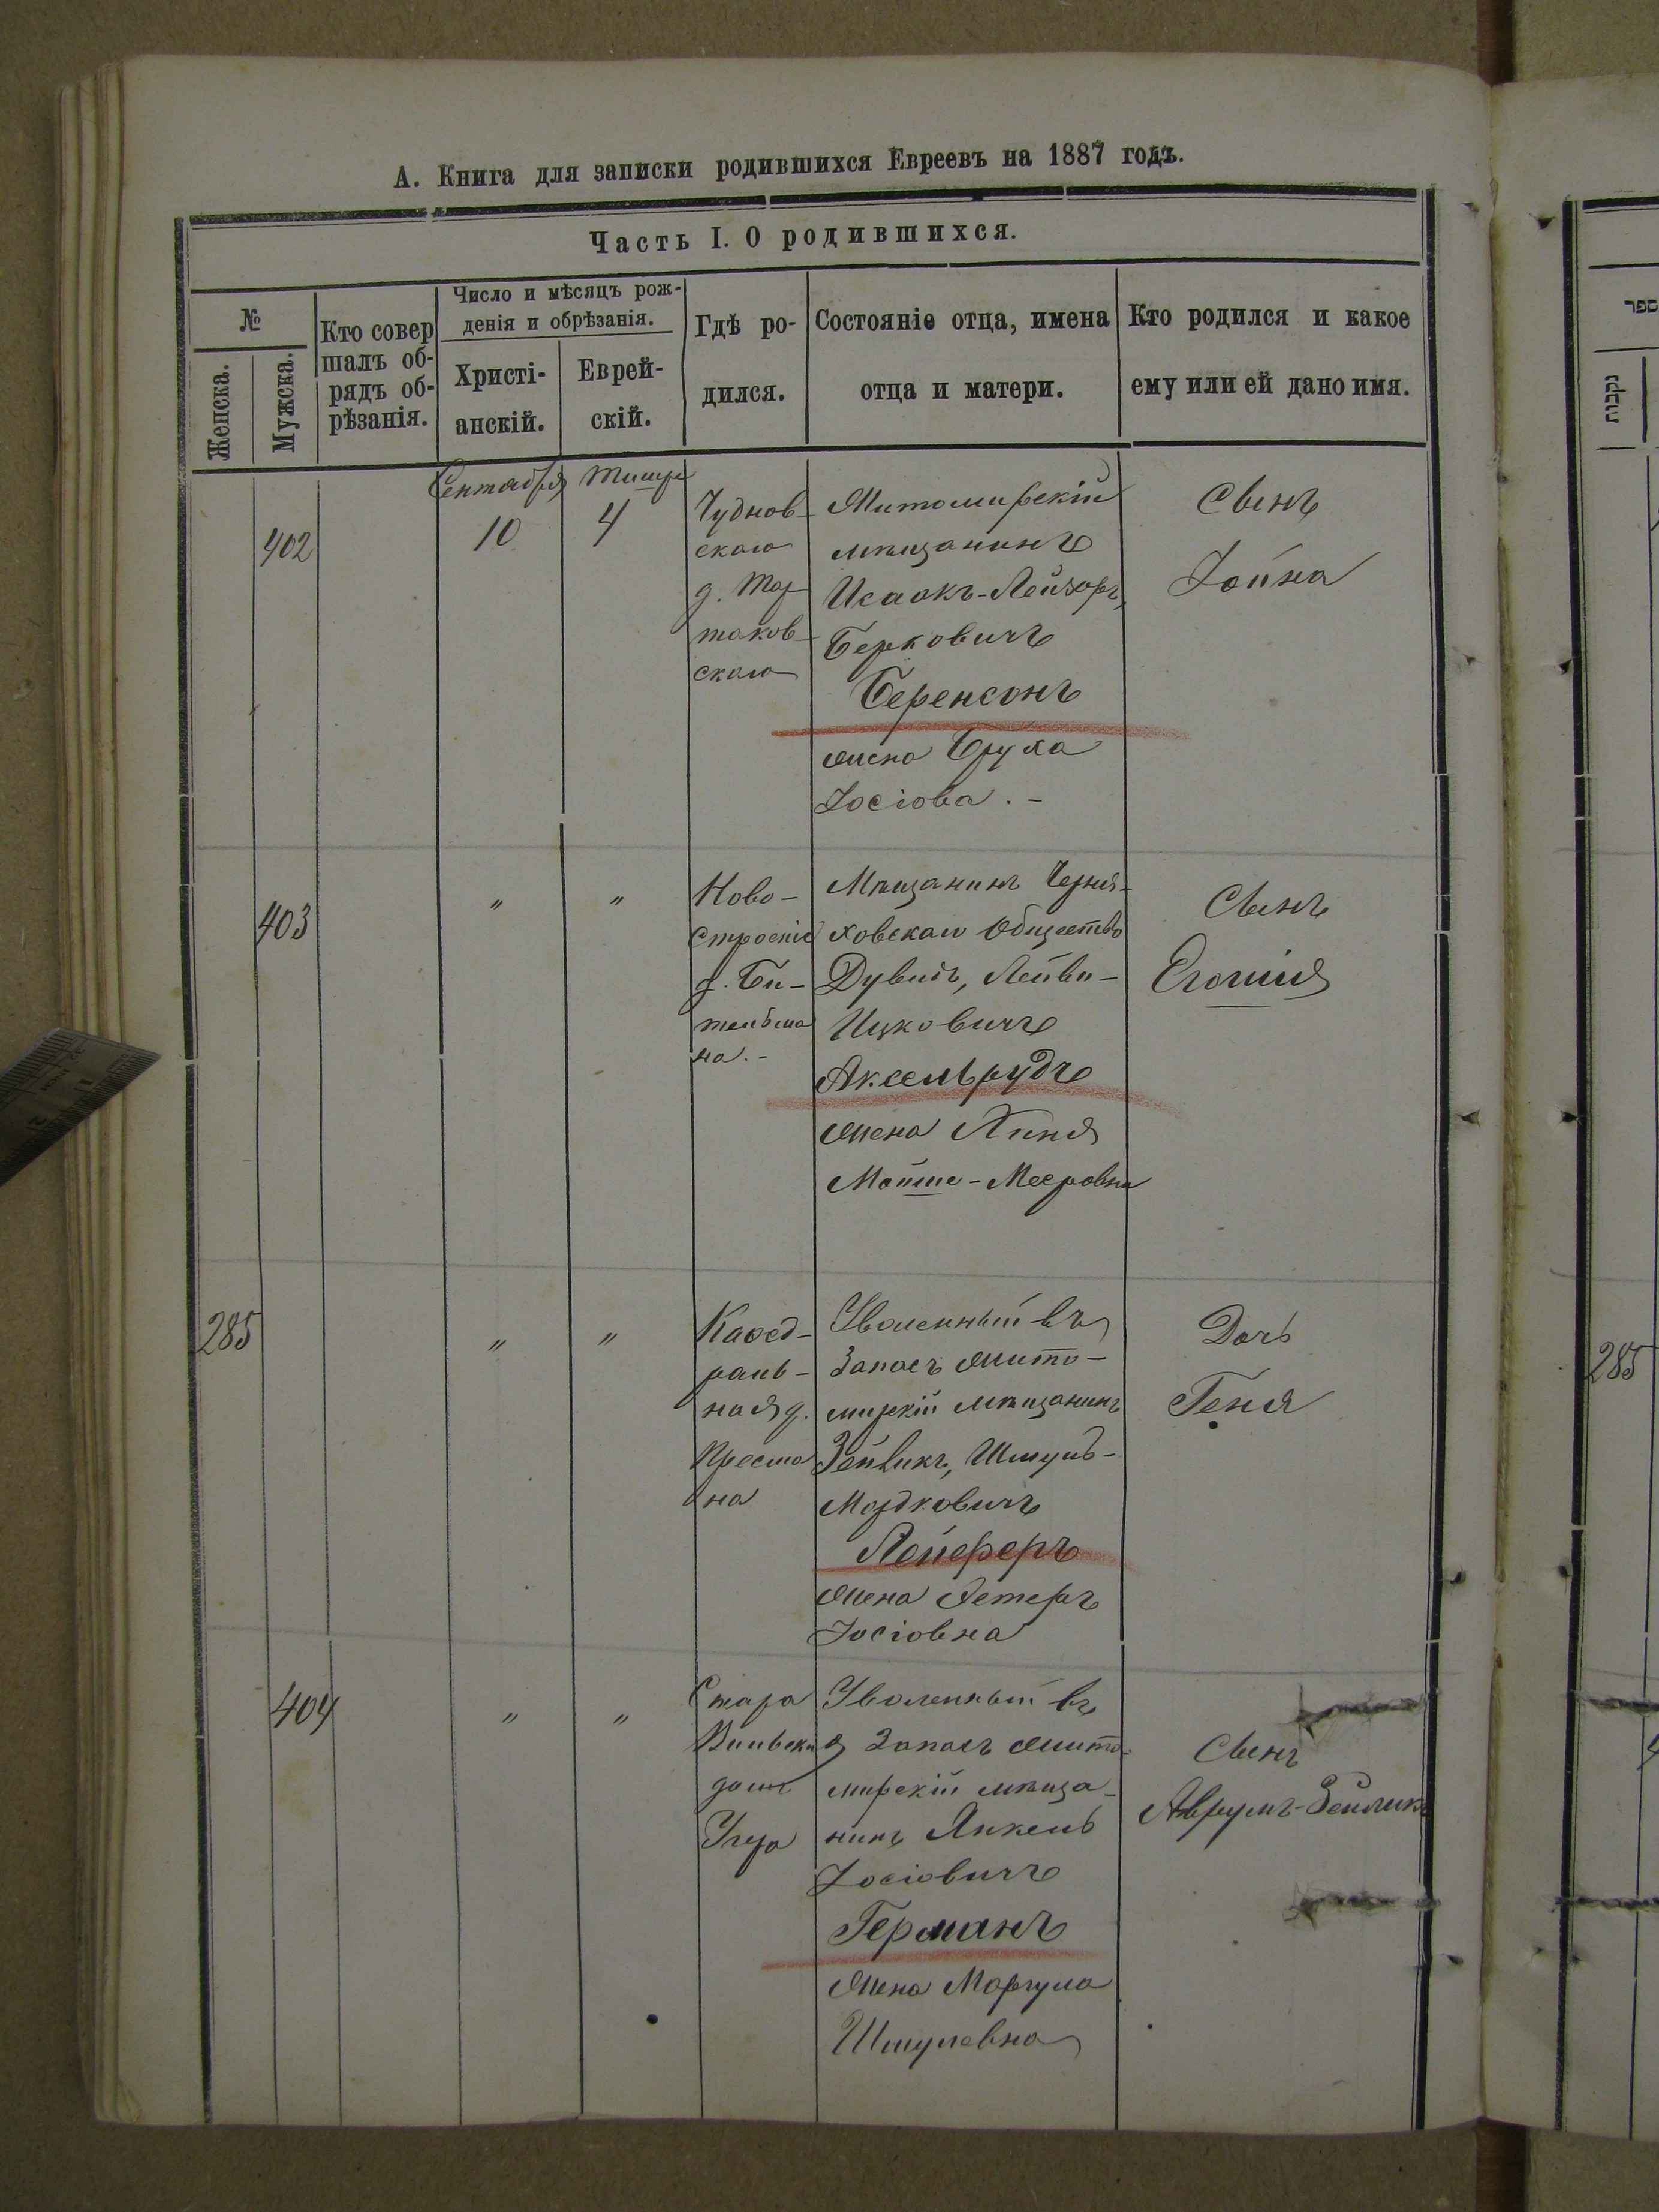 А. Книга для записки родившихся Евреевъ на 1887 годъ.
Часть I. О родившихся.
№
Женска.
Мужска.
Кто совер
шалъ об-
рядъ об-
рѣзанія.
Число и мѣсяцъ рож-
денія и обрѣзанія.
Христі-
анскій.
Еврей-
скій.
Гдѣ ро-
дился.
Состояніе отца, имена
отца и матери.
Кто родился и какое
ему или ей дано имя.
402
Сентября
10
Тишри
4
Чуднов-
скаго
д. Тор
таков-
скаго
Житомирскій
мѣщанинъ
Исаакъ-Лейзоръ,
Берковичъ
Беренсонъ
жена Бруха
Іосіова.-
Сынъ
Іойна
403
"
"
Ново-
строеніе
д.
на.-
Мѣщанинъ Черня-
ховскаго Общества
Дувидъ, Лейви-
Ицковичъ
Аксельрудъ
жена
Мойше-Мееровна
Сынъ
285
"
"
Каѳед-
раль-
ная д.
на
Уволенный въ
Запасъ Жито-
мирскій мѣщанинъ
Зейвикъ, Шмуль-
Мордковичъ
Лейферъ
жена
Іосіовна
Дочь
Геня
404
"
"
Стара
Вильская
домъ
Угера
Уволенный въ
Запасъ Жито-
мирскій мѣща-
нинъ Янкель
Іосіовичъ
Германъ
жена Маргула
Шмулевна
Сынъ
Аврумъ-Зейликъ
ספר
נקבות
285
4